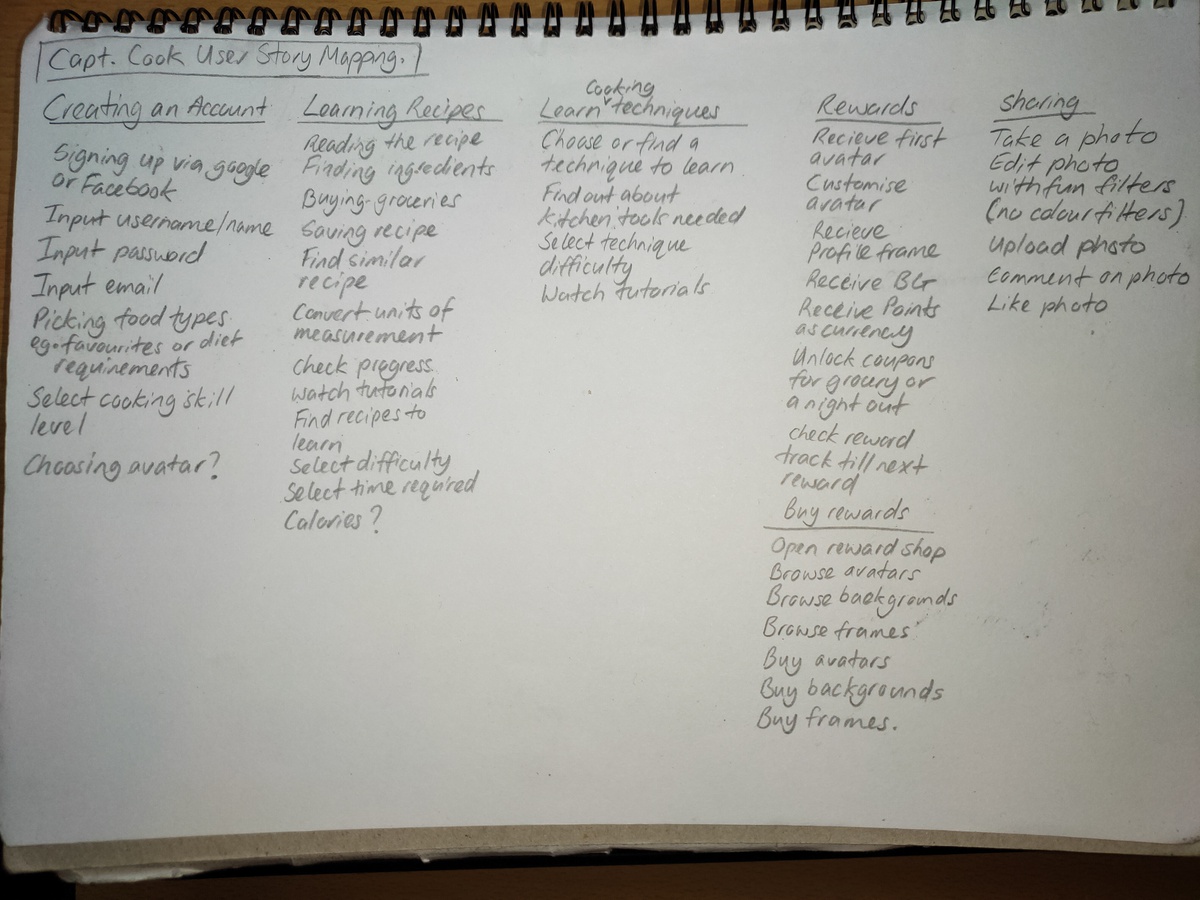 Capt. Cook User Story Mapping.
Creating an Account
Signing up via google
or Facebook
Input username/name
Input password
Input email
Picking food types
eg. favourites or diet
requirements
Select cooking skill
level
Choosing avatar?
Learning Recipes
Reading the recipe
Finding ingredients
Buying groceries
Saving recipe
Find similar
recipe
Convert units of
measurement
check progress
watch tutorials
Find recipes to
learn
Select difficulty
Select time required
Calories?
Cooking
Learn techniques
Choose or find a
technique to learn
Find out about
kitchen tools needed
Select technique
difficulty
Watch tutorials
Rewards
Recieve first
avatar
Customise
avatar
Recieve
Profile frame
Receive BG
Receive Points
as currency
Unlock coupons
for grocery or
a night out
check reward
track till next
reward
Buy rewards
Open reward shop
Browse avatars
Browse backgrounds
Browse frames
Buy avatars
Buy backgrounds
Buy frames.
Sharing
Take a photo
Edit photo
with fun filters
(no colour filters)
Upload photo
Comment on photo
Like photo